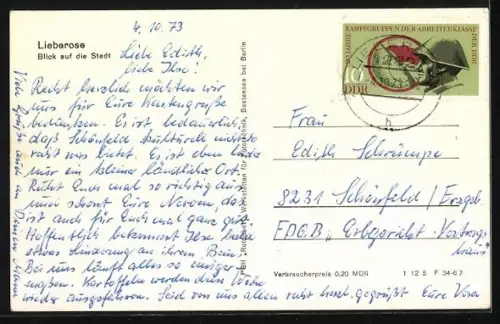 Lieberose
Blick auf die Stadt
4.10.73
Liebe Edith,
liebe Ilse!
Recht herzlich möchten wir
uns für Eure Kartengrüße
bedanken. Es ist bedauerlich,
daß Schönfeld kulturell nichts
recht was bietet. Es ist eben leider
nur ein kleiner ländlicher Ort.
Ruht Euch mal so richtig aus
und schont Eure Nerven, das
ist auch für Euch mal ganz gut.
Hoffentlich bekommt Ilse bald
etwas Linderung an ihrem Bein.
Bei uns läuft alles so einiger-
maßen. Kartoffeln werden diese Woche
wieder ausgefahren. Seid von uns allen recht herzl. gegrüßt Eure Vera
Viele Grüße auch an
PGH
Werkstätten für Fototechnik, Bestensee bei Berlin
20 JAHRE KAMPFGRUPPEN DER ARBEITERKLASSE
DER DDR
10
DDR
h
Frau
Edith Schrümpe
8231 Schönfeld/Erzgeb.
FDGB, Erbgericht
haus
Verbraucherpreis 0,20 MDN
1 12 5 F 34-67